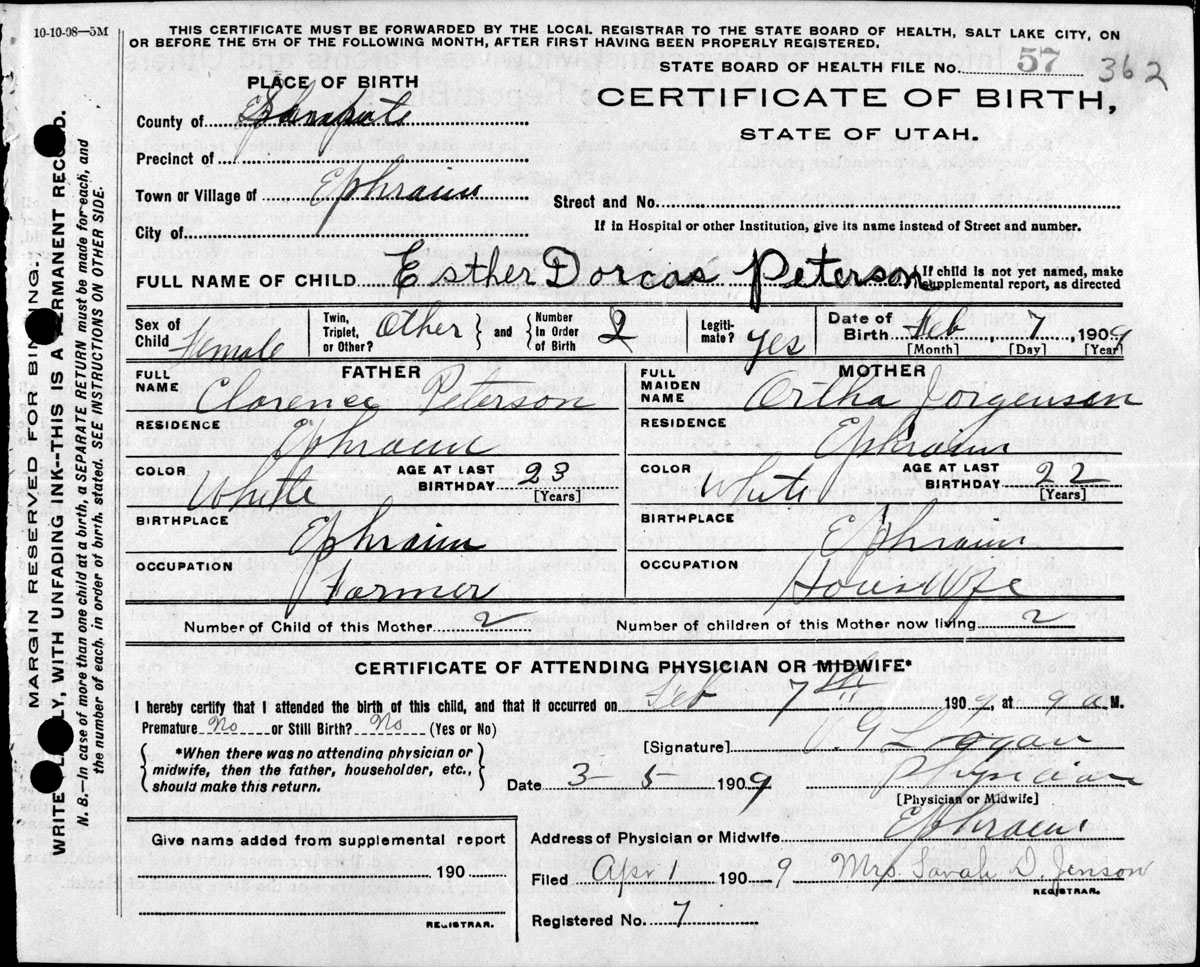 10-10-08—5M
THIS CERTIFICATE MUST BE FORWARDED BY THE LOCAL REGISTRAR TO THE STATE BOARD OF HEALTH, SALT LAKE CITY, ON
OR BEFORE THE 5TH OF THE FOLLOWING MONTH, AFTER FIRST HAVING BEEN PROPERLY REGISTERED.
STATE BOARD OF HEALTH FILE No. 57 362
PLACE OF BIRTH
CERTIFICATE OF BIRTH,
STATE OF UTAH.
County of Sanpete
Precinct of
Town or Village of Ephraim
Street and No.
City of
If in Hospital or other Institution, give its name instead of Street and number.
FULL NAME OF CHILD Esther Dorcas Peterson
If child is not yet named, make
supplemental report, as directed
Sex of Child Female
Twin, Triplet, or Other? Other and Number In Order of Birth 2
Legiti- mate? yes
Date of Birth Feb, 7, 1909
[Month] [Day] [Year]
FATHER
FULL NAME Clarence Peterson
RESIDENCE Ephraim
COLOR White AGE AT LAST BIRTHDAY 23
[Years]
BIRTHPLACE Ephraim
OCCUPATION Farmer
MOTHER
FULL MAIDEN NAME Ortha Jorgensen
RESIDENCE Ephraim
COLOR White AGE AT LAST BIRTHDAY 22
[Years]
BIRTHPLACE Ephraim
OCCUPATION Houswfe
Number of Child of this Mother 2 Number of children of this Mother now living 2
CERTIFICATE OF ATTENDING PHYSICIAN OR MIDWIFE*
I hereby certify that I attended the birth of this child, and that it occurred on Feb 7th 1909, at 9 a M.
Premature No or Still Birth? No (Yes or No)
*When there was no attending physician or
midwife, then the father, householder, etc.,
should make this return.
[Signature] Logan
Date 3-5 1909 Physician
[Physician or Midwife]
Give name added from supplemental report
190
REGISTRAR.
Address of Physician or Midwife Ephraim
Filed Apr 1 1909 Mrs. Sarah D. Jenson
REGISTRAR.
Registered No. 7
MARGIN RESERVED FOR BINDING.
WRITE LY, WITH UNFADING INK--THIS IS A PERMANENT RECORD.
N. B.—In case of more than one child at a birth, a SEPARATE RETURN must be made for each, and
the number of each, in order of birth, stated. SEE INSTRUCTIONS ON OTHER SIDE.